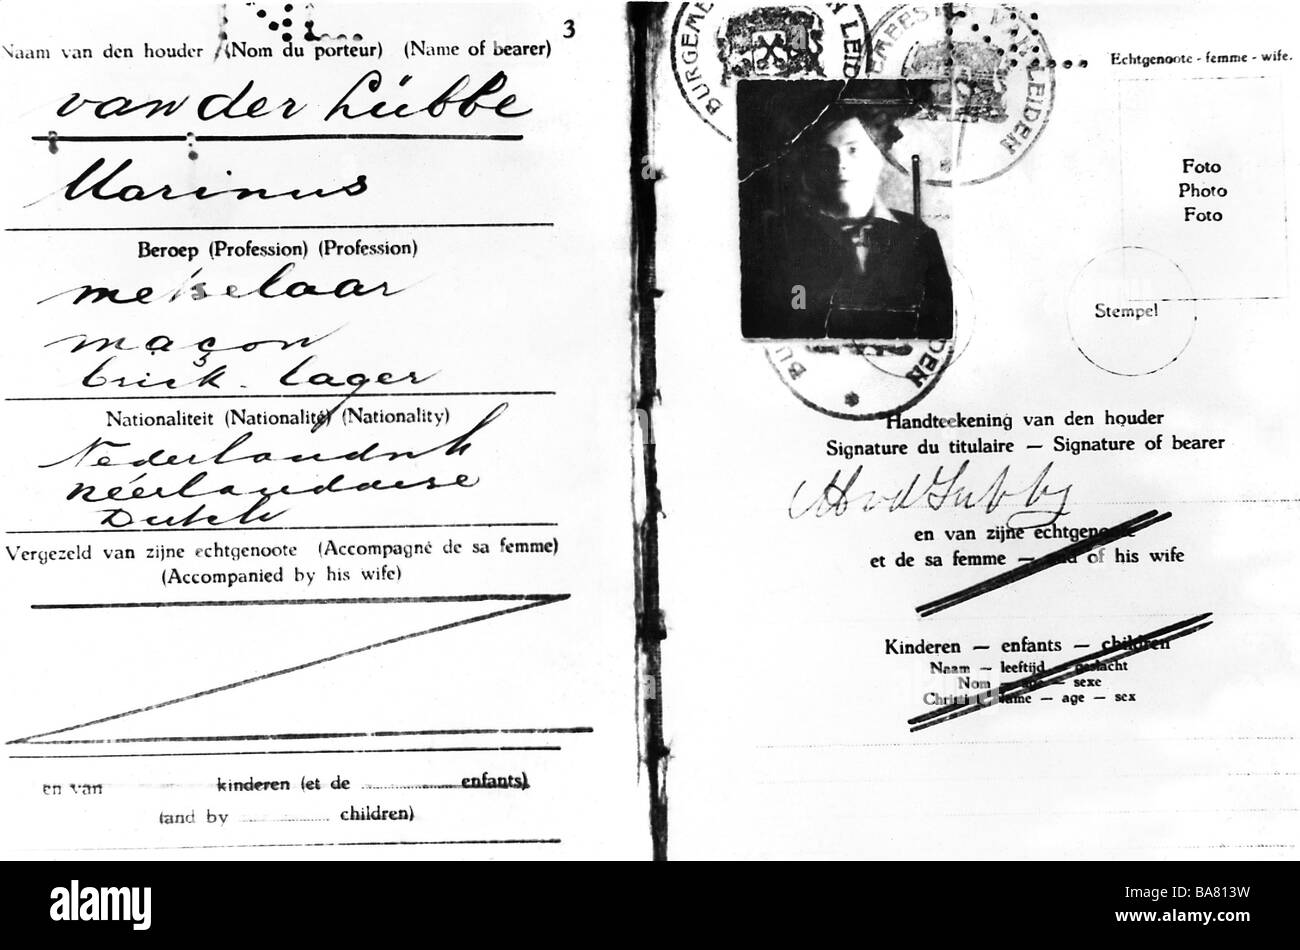 3
Naam van den houder (Nom du porteur) (Name of bearer)
van der Lübbe
Marinus
Beroep (Profession) (Profession)
metselaar
maçon
brick-lager
Nationaliteit (Nationalité) (Nationality)
Nederlandsch
néerlandaise
Dutch
Vergezeld van zijne echtgenoote (Accompagné de sa femme)
(Accompanied by his wife)
en van kinderen (et de enfants)
(and by children)
BURGEMEESTER VAN LEIDEN
LEIDEN
Echtgenoote - femme - wife.
Foto
Photo
Foto
Stempel
BU
DEN
Handteekening van den houder
Signature du titulaire — Signature of bearer
M vd Lubbe
en van zijne echtgenoote
et de sa femme — and of his wife
Kinderen — enfants — children
Naam — leeftijd — geslacht
Nom — age — sexe
Christian Name — age — sex
alamy
Image ID: BA813W
www.alamy.com